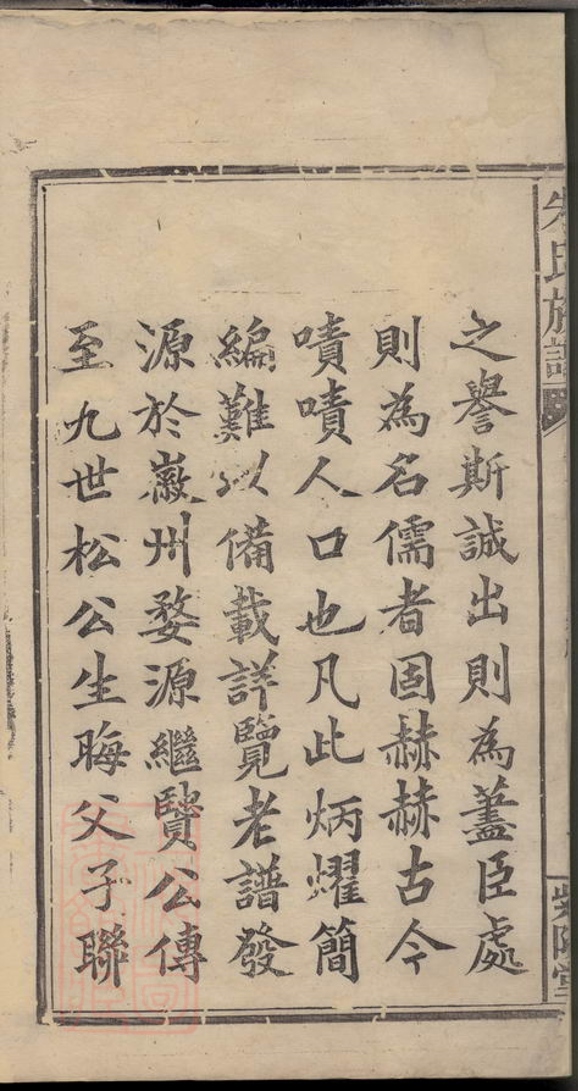 朱氏族譜
紫陽堂
之譽斯誠出則為藎臣處
則為名儒者固赫赫古今
嘖嘖人口也凡此炳耀簡
編難以備載詳覽老譜發
源於徽州婺源繼賢公傳
至九世松公生晦父子聯